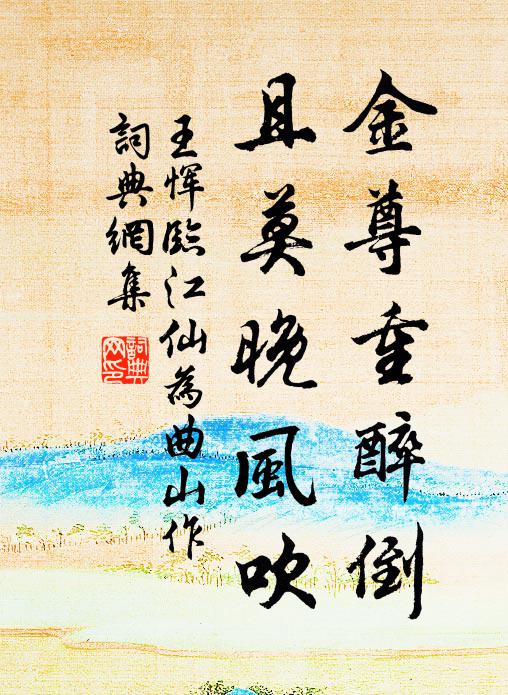 金尊重醉倒
且莫晚風吹
王惲臨江仙為曲山作
詞典網集
詞典
网印